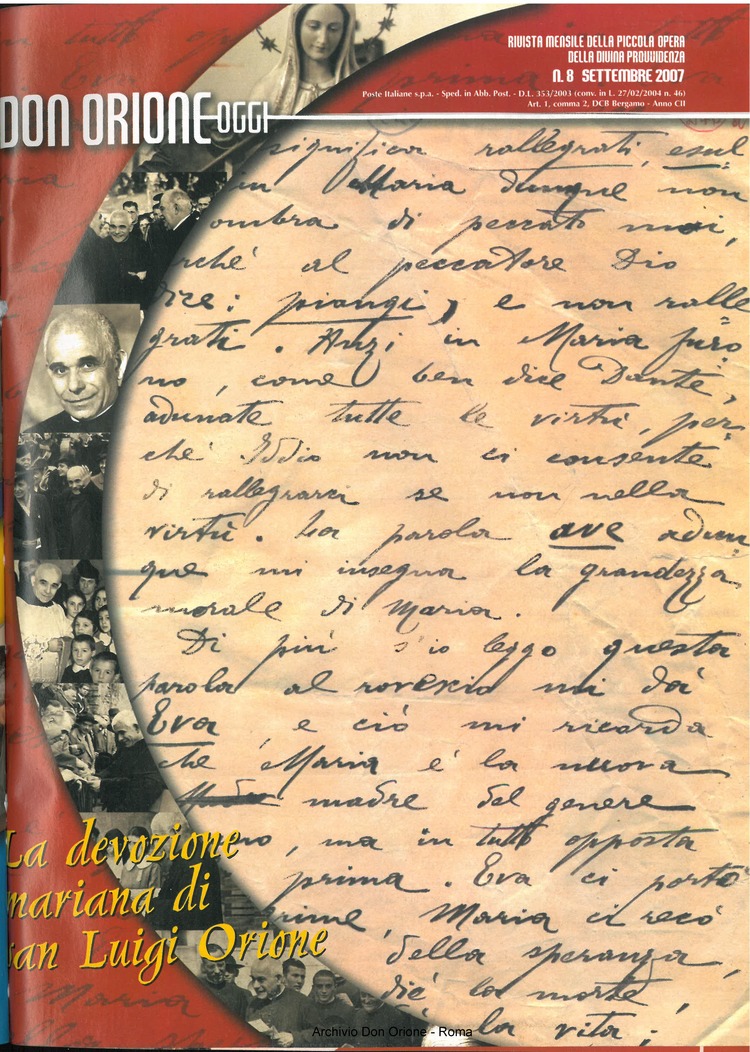 RIVISTA MENSILE DELLA PICCOLA OPERA
DELLA DIVINA PROVVIDENZA
N. 8 SETTEMBRE 2007
Poste Italiane s.p.a. - Sped. in Abb. Post. - D.L. 353/2003 (conv. in L. 27/02/2004 n. 46)
Art. 1, comma 2, DCB Bergamo - Anno CII
DON ORIONE OGGI
significa rallegrati, esul
in Maria dunque non
ombra di peccato mai,
rché al peccatore Dio
dice: piangi, e non ralle
grati. Anzi in Maria furo
no, come ben dice Dante,
adunate tutte le virtù, per
ché Iddio non ci consente
di rallegrarci se non nella
virtù. La parola ave adun
que mi insegna la grandezza
morale di Maria.
Di più s'io leggo questa
parola al rovescio mi dà
Eva e ciò mi ricorda
che Maria è la nuova
madre del genere
no, ma in tutto opposta
prima. Eva ci portò
rime, Maria ci recò
della speranza,
diè la morte,
la vita;
La devozione
mariana di
san Luigi Orione
Archivio Don Orione - Roma